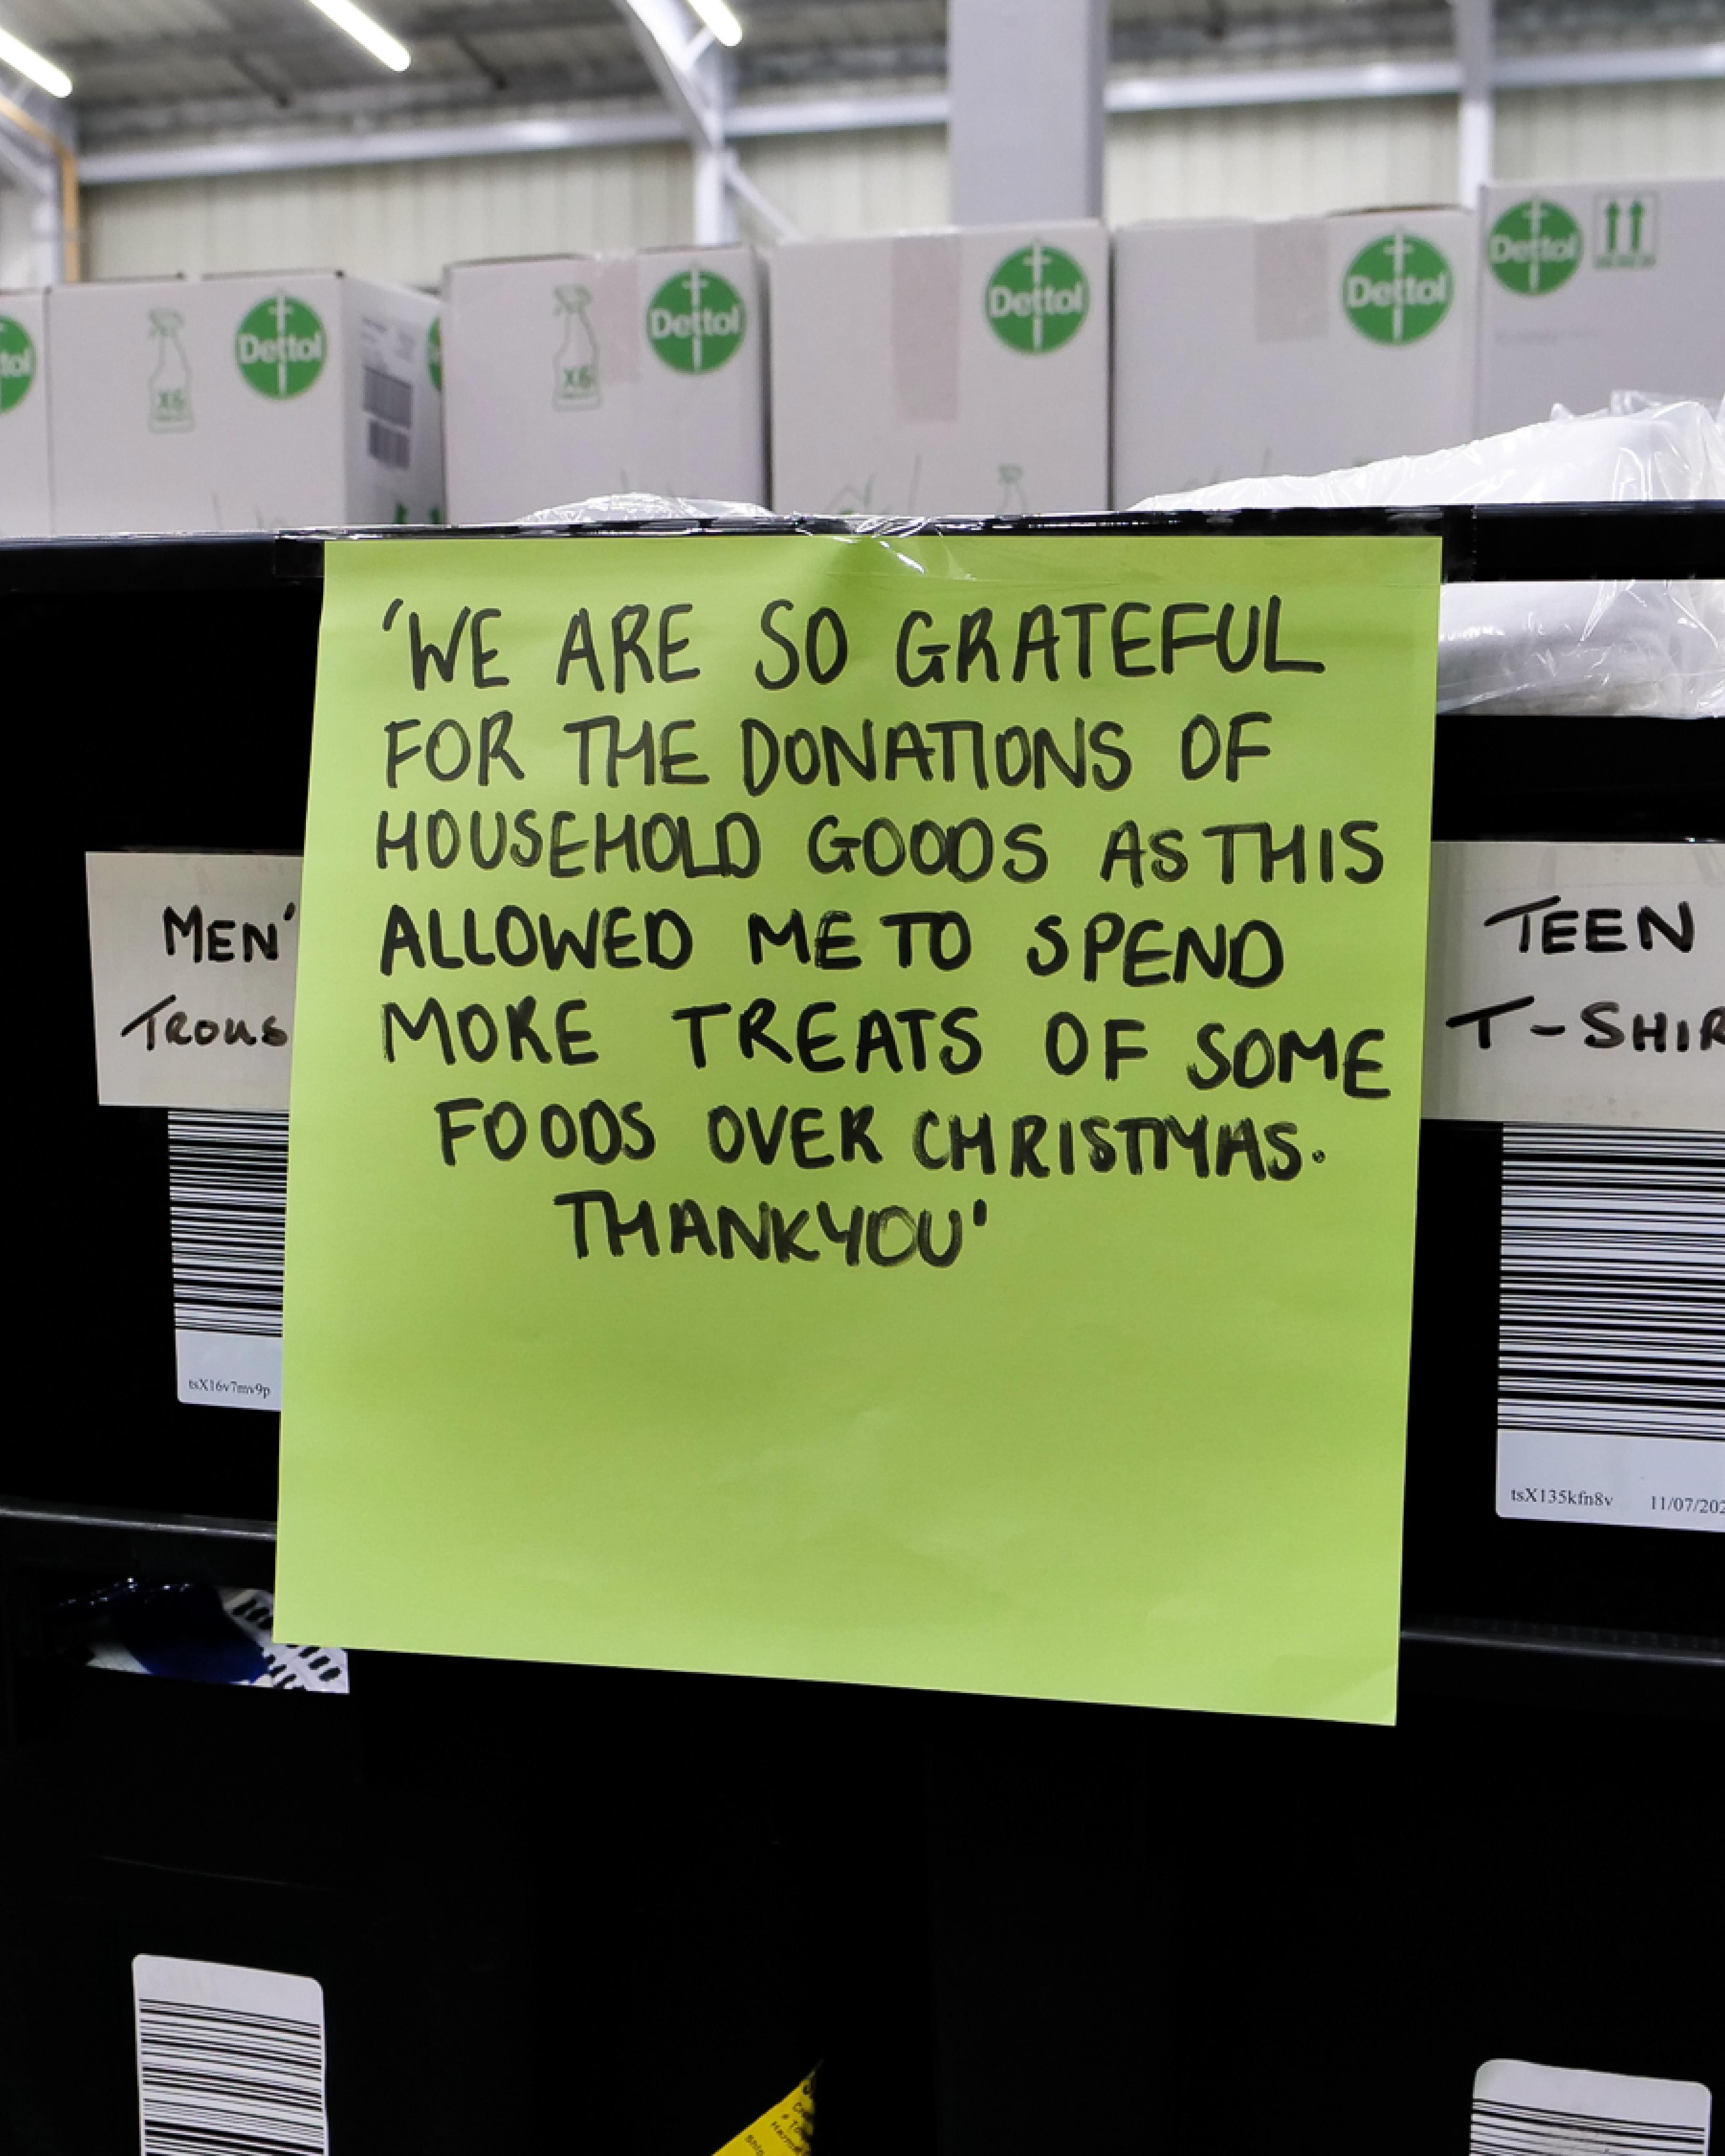 Dettol
Dettol
Dettol
Dettol
Dettol
X6
X6
'WE ARE SO GRATEFUL
FOR THE DONATIONS OF
HOUSEHOLD GOODS AS THIS
ALLOWED ME TO SPEND
MORE TREATS OF SOME
FOODS OVER CHRISTMAS.
THANKYOU'
MEN'
TROUS
TEEN
T-SHIR
tsX16v7mv9p
tsX135kfn8v 11/07/202